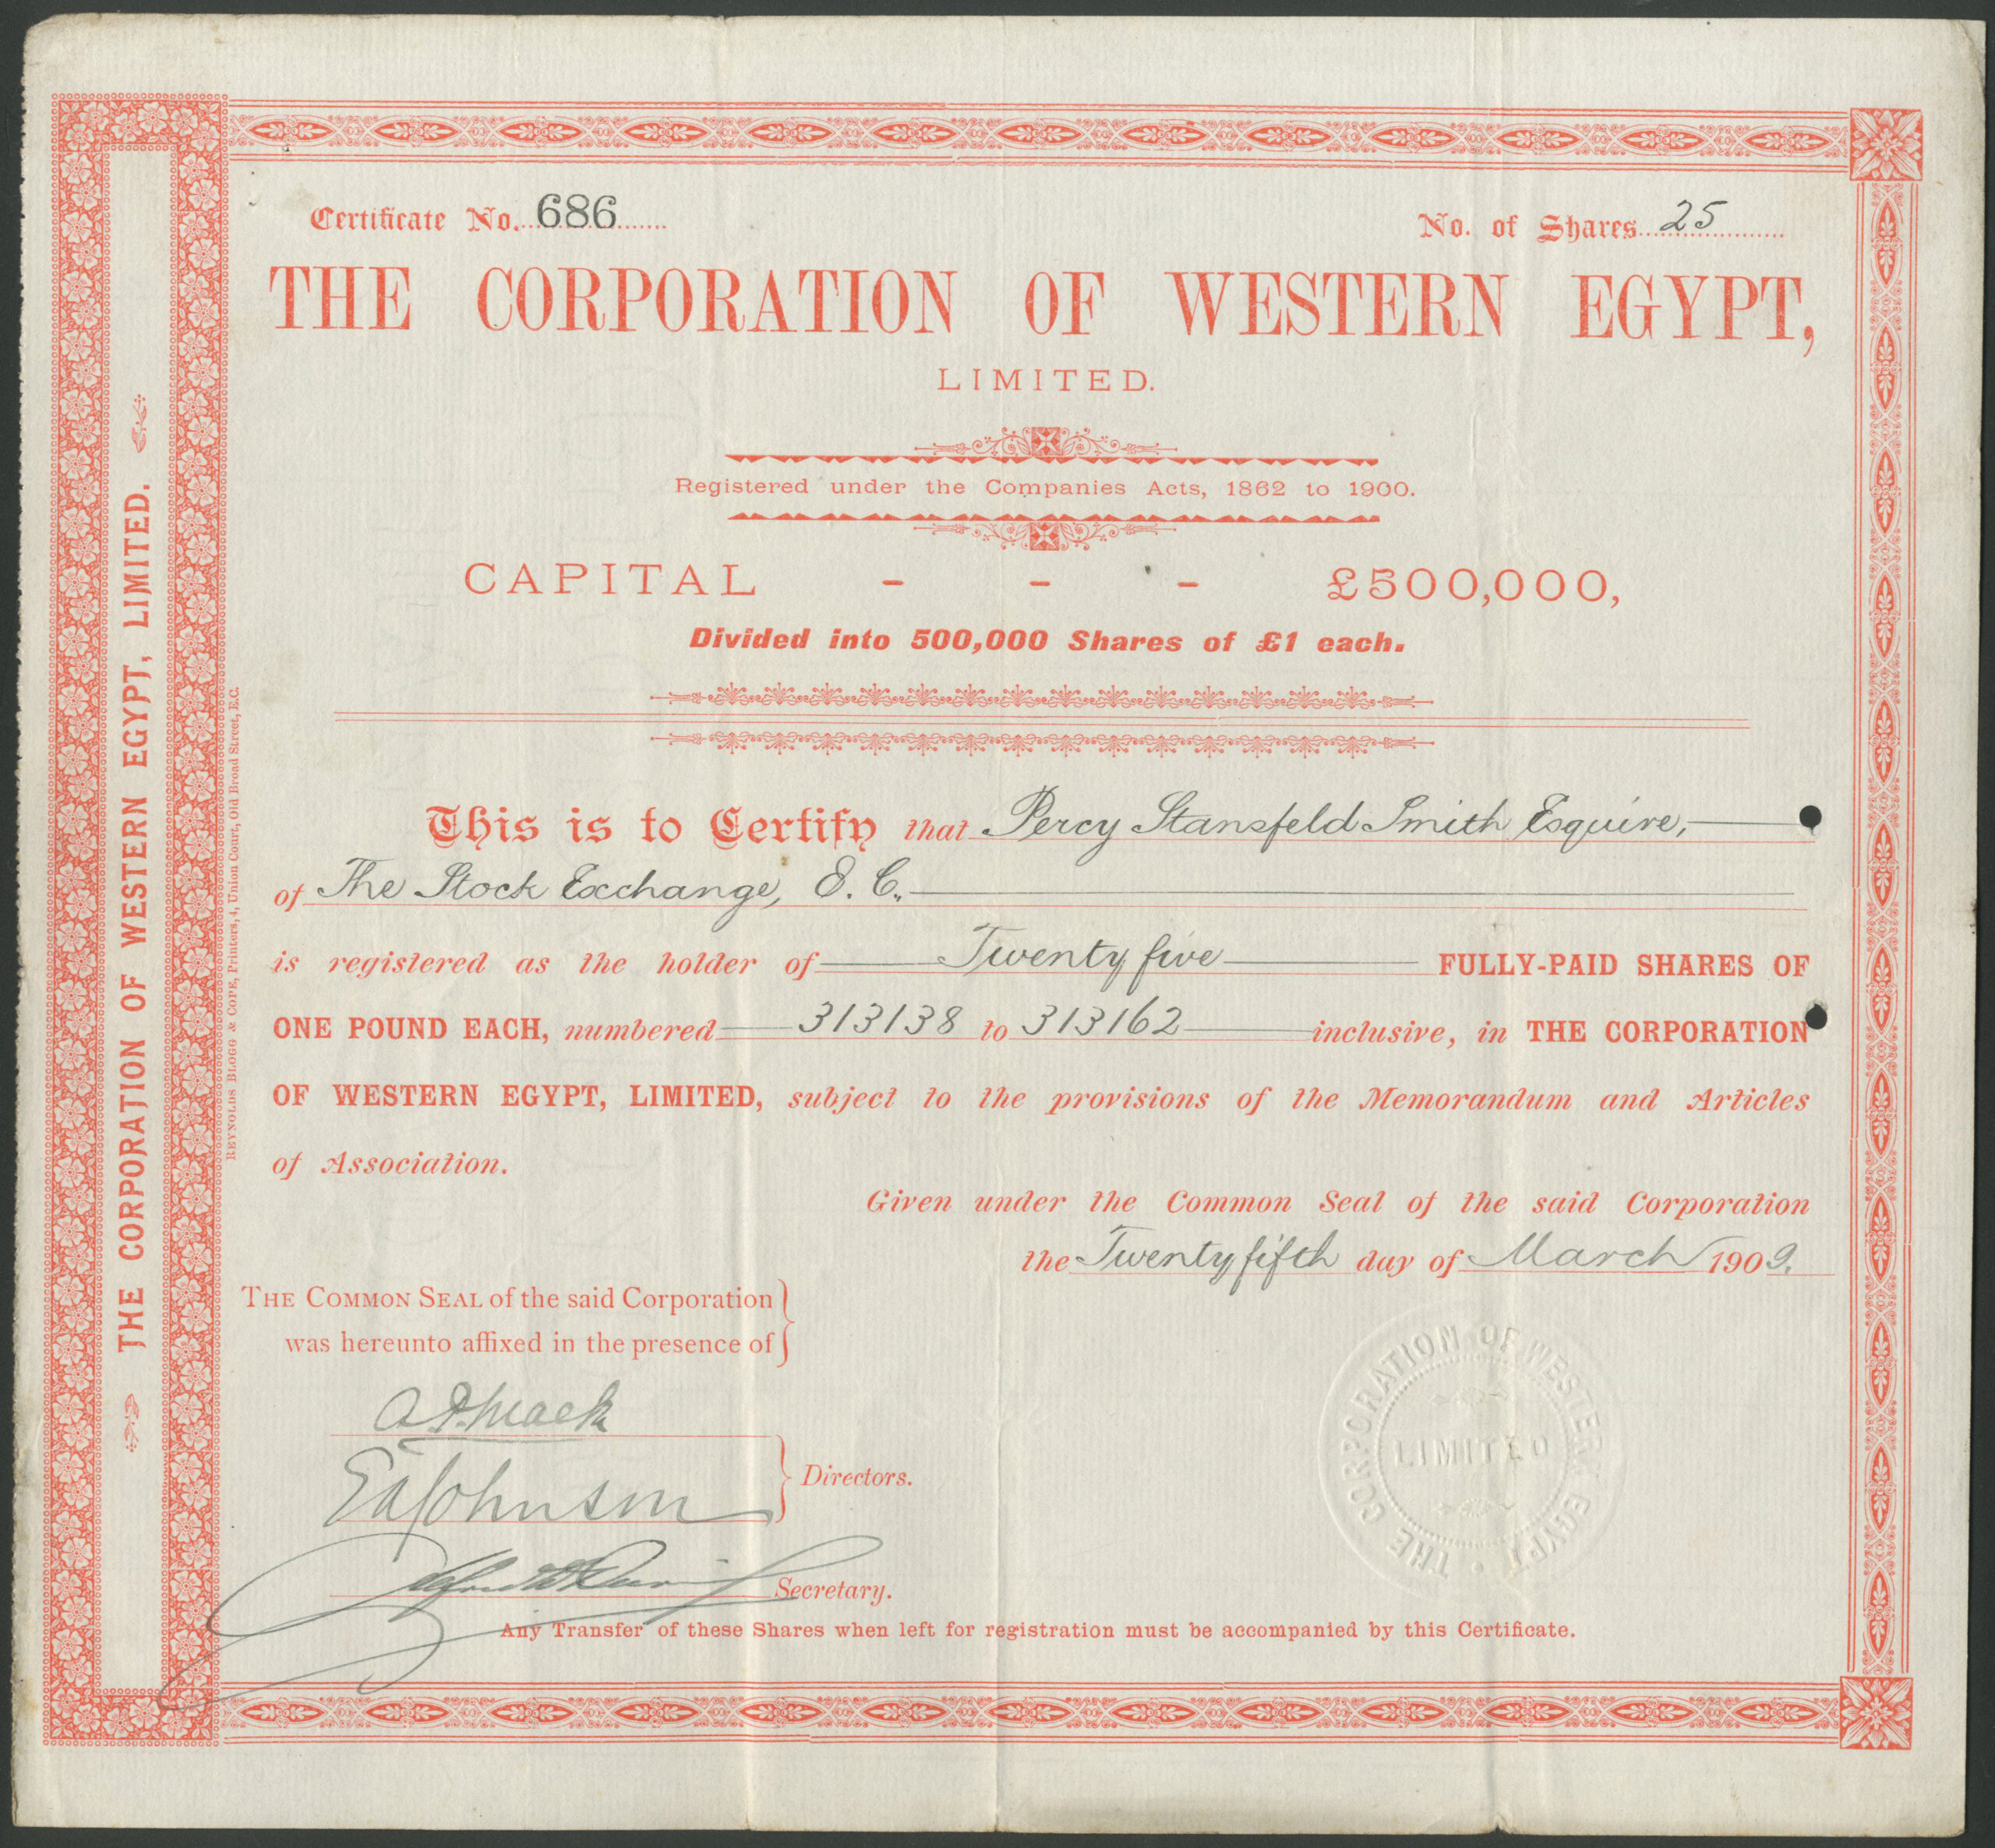 Certificate No. 686
No. of Shares 25
THE CORPORATION OF WESTERN EGYPT,
LIMITED.
Registered under the Companies Acts, 1862 to 1900.
CAPITAL - - - £500,000,
Divided into 500,000 Shares of £1 each.
This is to Certify that Percy Stansfeld Smith Esquire,
of The Stock Exchange, E. C.
is registered as the holder of Twenty five FULLY-PAID SHARES OF
ONE POUND EACH, numbered 313138 to 313162 inclusive, in THE CORPORATION
OF WESTERN EGYPT, LIMITED, subject to the provisions of the Memorandum and Articles
of Association.
Given under the Common Seal of the said Corporation
the Twenty fifth day of March 1909.
THE COMMON SEAL of the said Corporation
was hereunto affixed in the presence of
Johnson
Directors.
Secretary.
Any Transfer of these Shares when left for registration must be accompanied by this Certificate.
THE CORPORATION OF WESTERN EGYPT
LIMITED
THE CORPORATION OF WESTERN EGYPT, LIMITED.
REYNOLDS BLOGG & COPE, Printers, 4, Union Court, Old Broad Street, E.C.